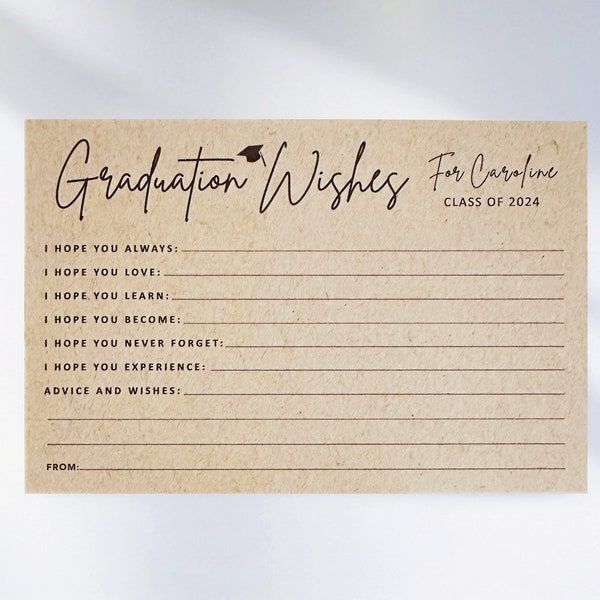 Graduation Wishes
For Caroline
CLASS OF 2024
I HOPE YOU ALWAYS:
I HOPE YOU LOVE:
I HOPE YOU LEARN:
I HOPE YOU BECOME:
I HOPE YOU NEVER FORGET:
I HOPE YOU EXPERIENCE:
ADVICE AND WISHES:
FROM: